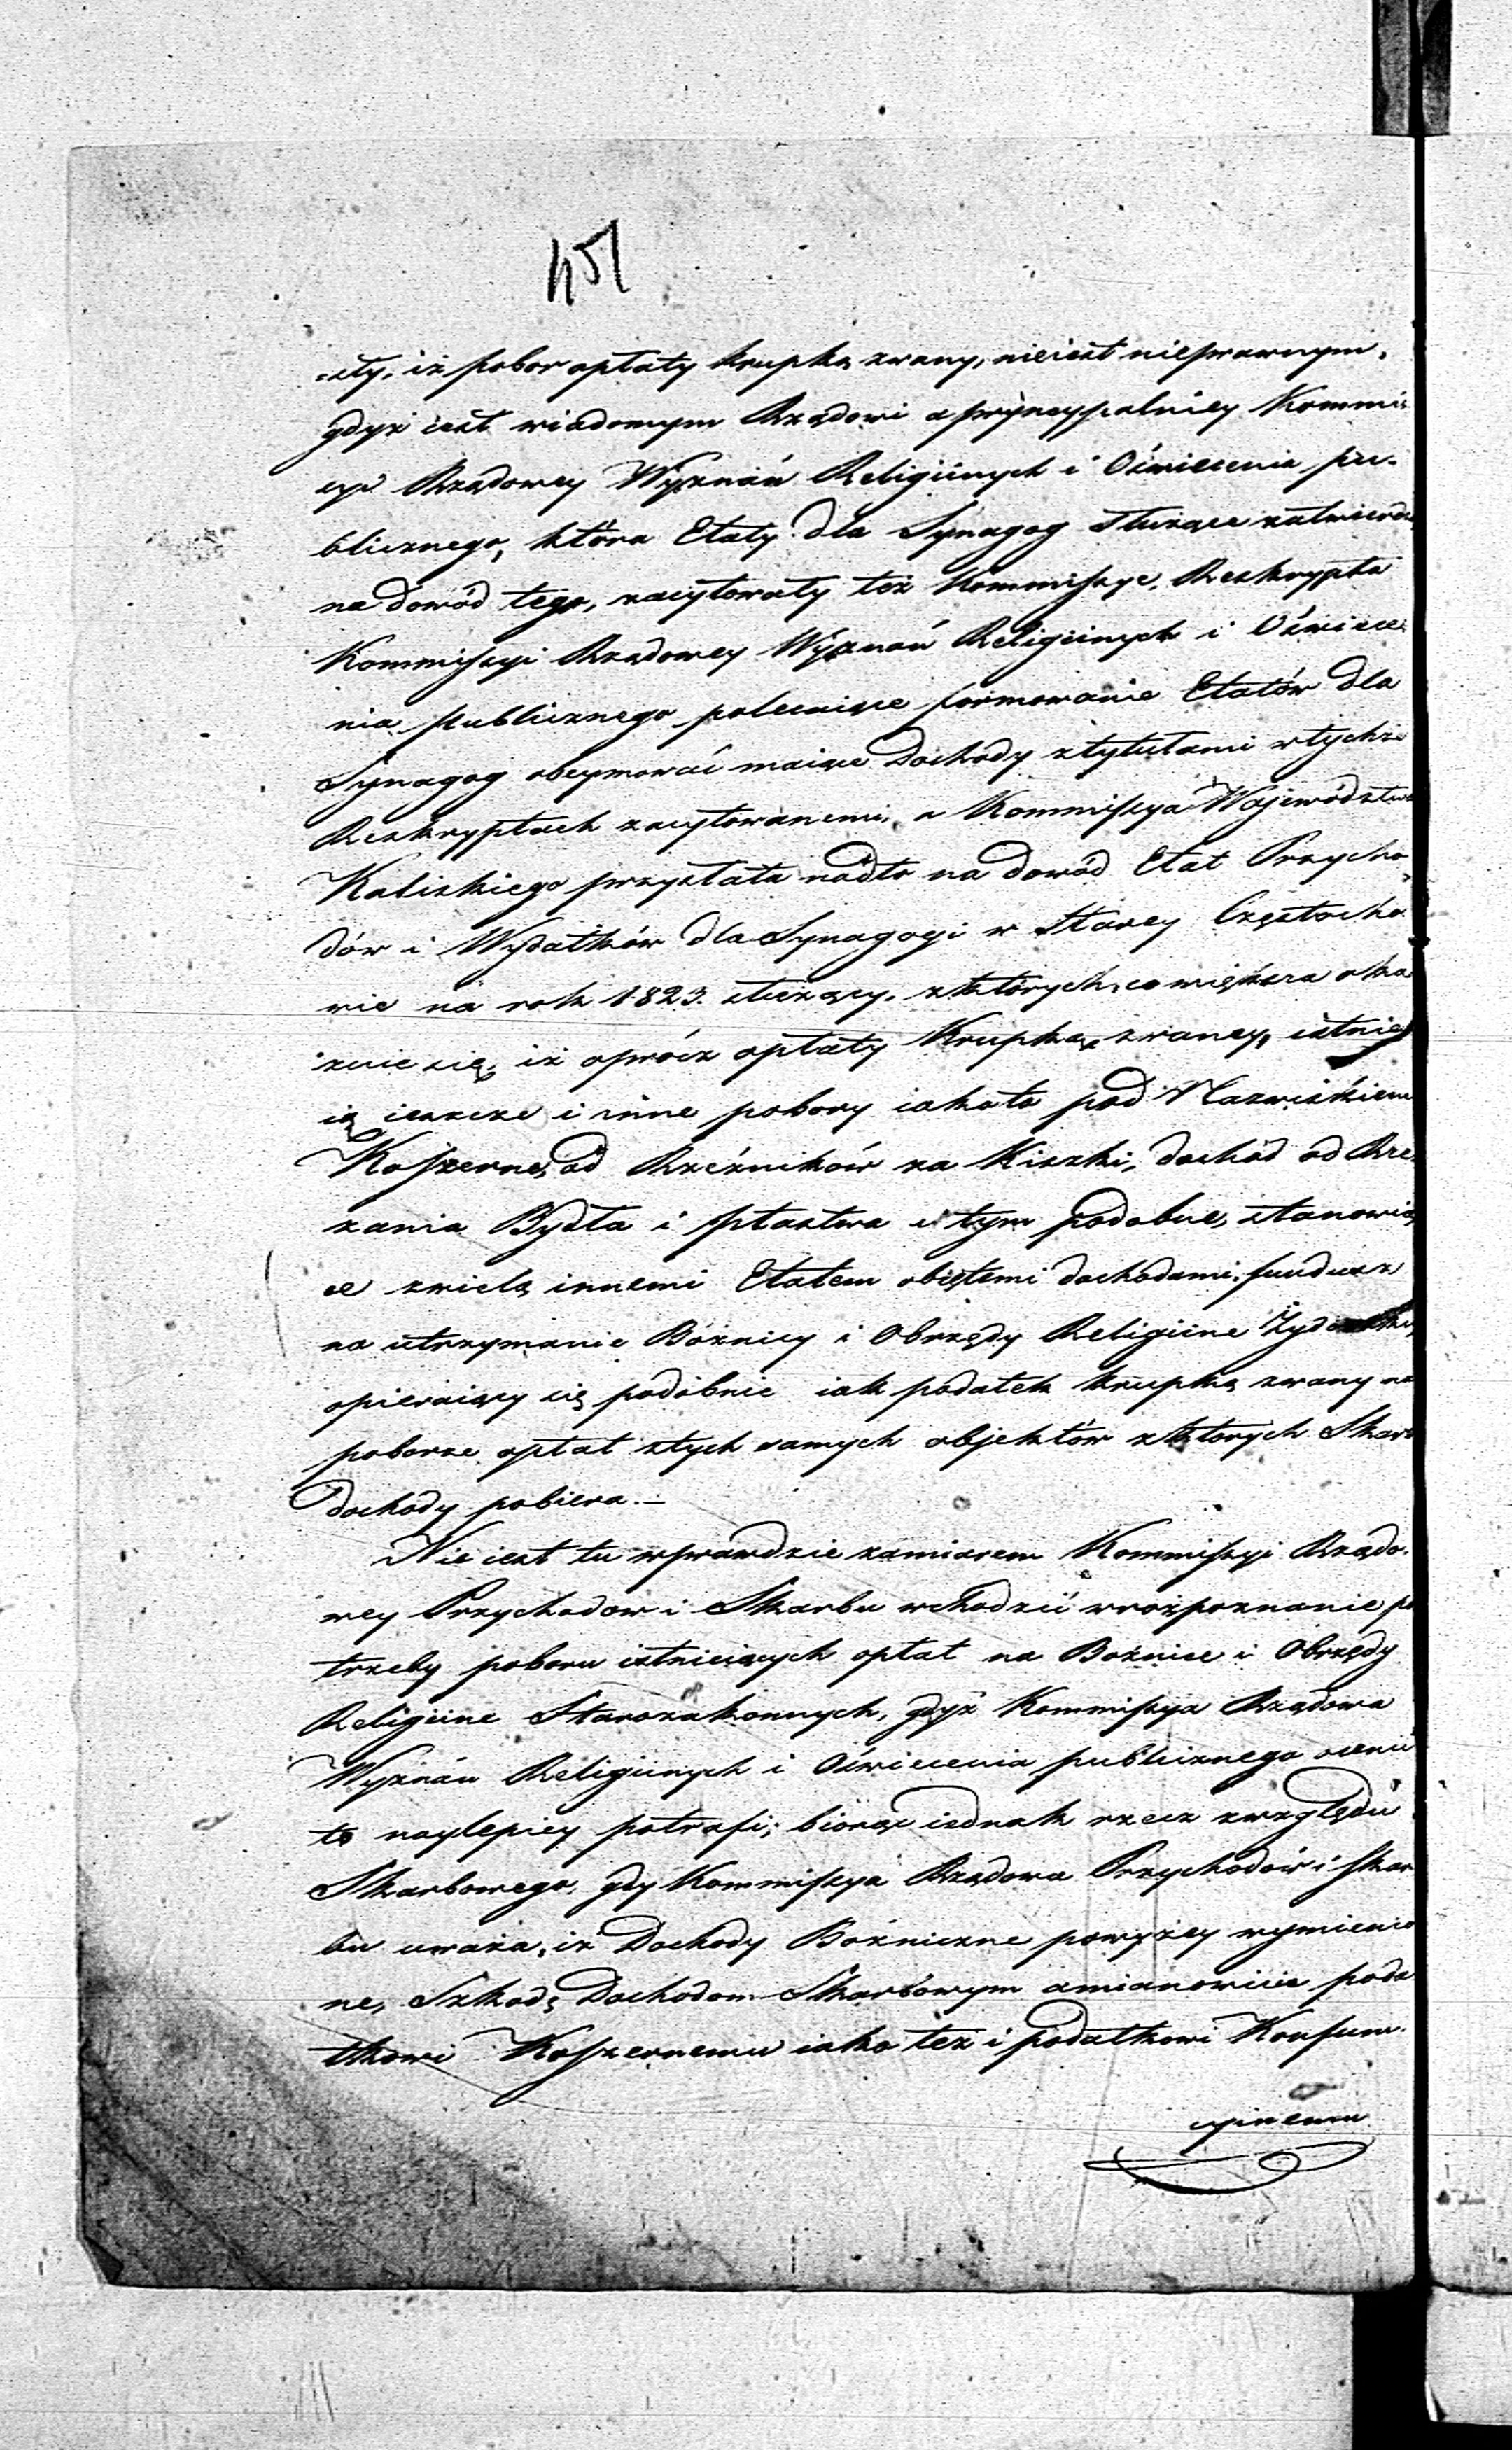 451
=zły, iż pobor opłaty krupką zwany, nieiest nieprawnym,
gdyż iest wiadomym Rządowi a pryncypalniey Kommis
cyi Rządowey Wyznań Religiinych i Oświecenia pu-
blicznego, która Etaty dla Synagog służące zatwierdza
na dowód tego, zacytowały też Kommissye, Reskrypta
Kommissyi Rządowey Wyznań Religiinych i Oświece
nia publicznego polecaiące formowanie Etatów dla
Synagog obeymować maiące Dochody ztytułami wtychże
Reskryptach zacytowanemi, a Kommissya Wojewódstwa
Kaliskiego przysłała nadto na dowód Etat Przycho
dów i Wydatków dla Synagogi w Starey Częstocho
wie na rok 1823. służący, zktórych, co większa oka
zuie się, iż oprócz opłaty Krupką zwaney, istnie
ią ieszcze i inne pobory iakoto pod Nazwiskiem
Koszerne, od Rzeźników za Kiszki, dochód od Rze
zania Bydła i ptastwa i tym podobne, stanowią
ce zwielą innemi Etatem obiętemi dochodami, fundusz
na utrzymanie Bóżnicy i Obrzędy Religiine Żydowskie,
opieraiący się podobnie iak podatek krupką zwany na
poborze opłat ztych samych objektów zktorych Skarb
dochody pobiera.—
Nie iest tu wprawdzie zamiarem Kommissyi Rządo-
wey Przychodow i Skarbu wchodzić wrozpoznanie po
trzeby poboru istnieiących opłat na Bożnice i Obrzędy
Religiine Starozakonnych, gdyż Kommissya Rządowa
Wyznań Religiinych i Oświecenia publicznego ocenić
to naylepiey potrafi; biorąc iednak rzecz zwzględu
Skarbowego, gdy Kommissya Rządowa Przychodów i Skar
bu uważa, iż Dochody Bożniczne powyżey wymienio
ne, Szkodę Dochodom Skarbowym amianowicie poda
tkowi Koszernemu iako też i podatkowi Konsum-
cyinemu